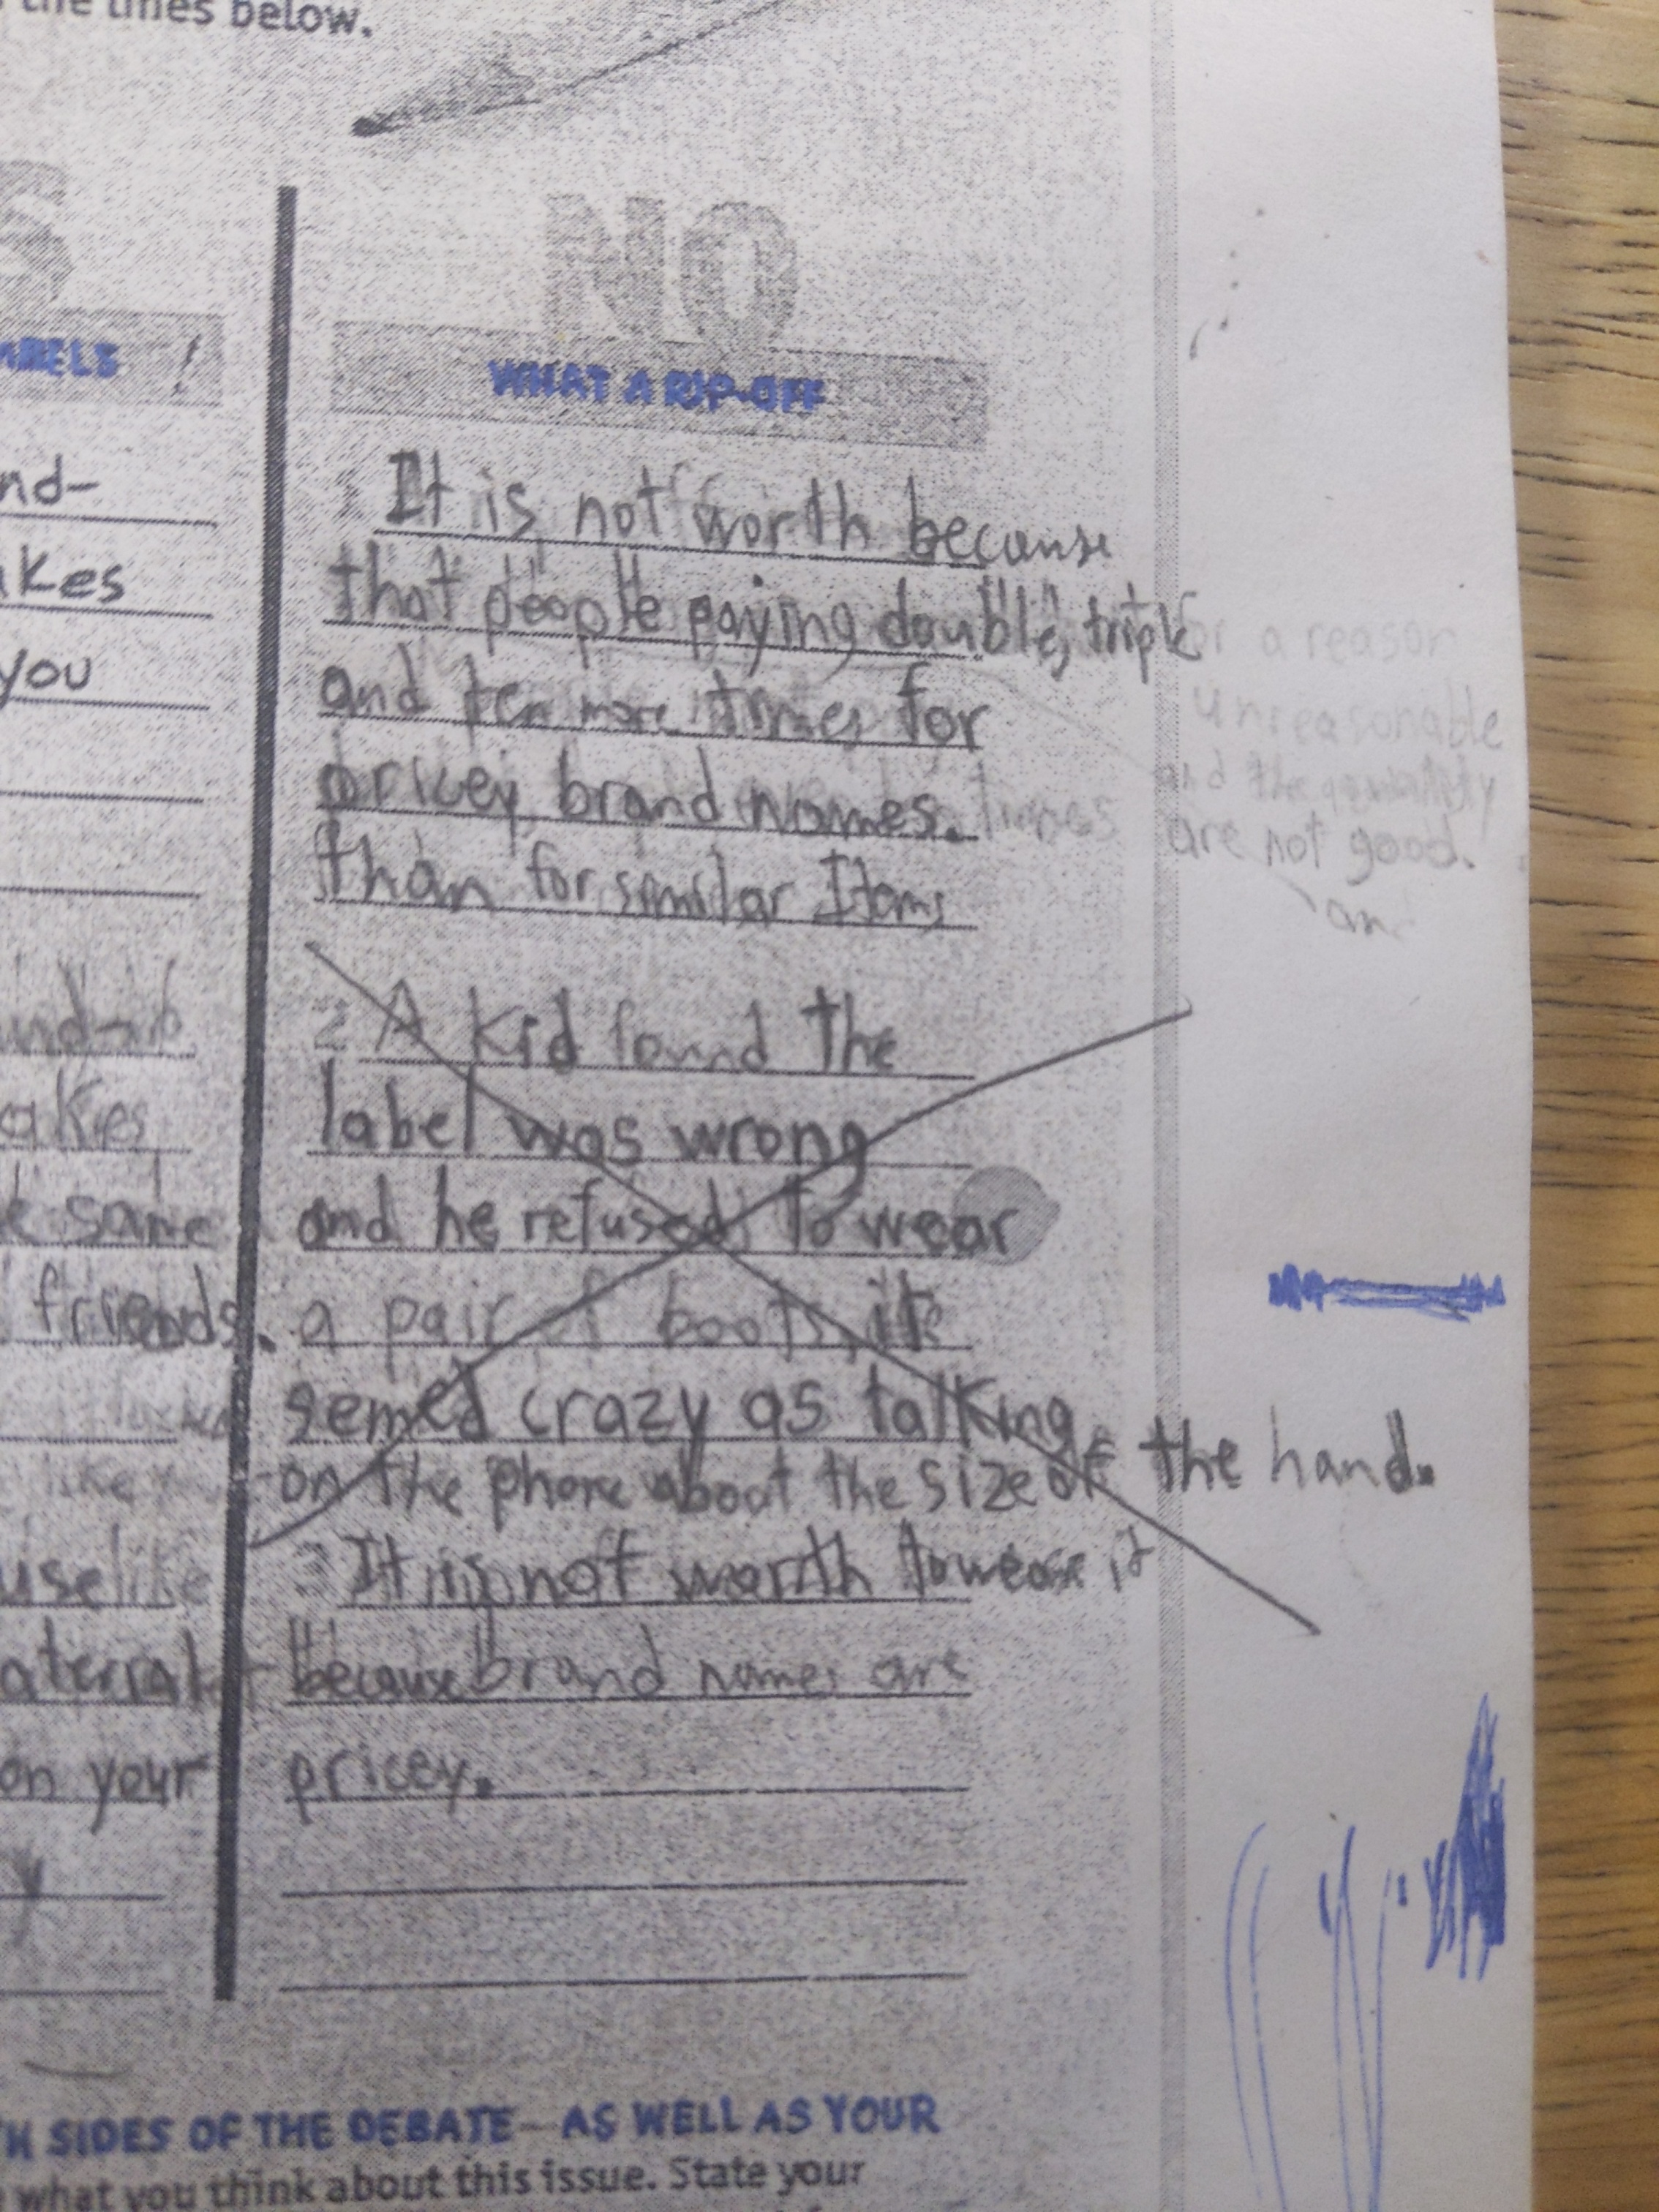 the lines below.
NO
ABELS !
WHAT A RIP-OFF
nd-
akes
you
1 It is not worth because
that people paying double, triple
and ten more times for
pricey brand names.
than for similar Items
or a reason
unreasonable
and the quantity
are not good.
an
akes
same
friends.
use like
aterial
on your
y
2 A kid found the
label was wrong
and he refused to wear
a pair of boots, it
semed crazy as talking
on the phone about the size of the hand.
3 It is not worth to wear it
because brand names are
pricey.
H SIDES OF THE DEBATE—AS WELL AS YOUR
what you think about this issue. State your